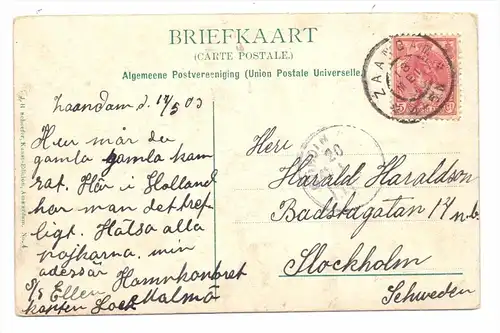 BRIEFKAART
(CARTE POSTALE.)
Algemeene Postvereeniging (Union Postale Universelle)
Zaandam d. 17/5 03
Hur mår du
gamla gamla kam
rat. Här i Holland
har man det tref
ligt. Hälsa alla
pojkarna, min
adessär Hamnkontoret
S/S Ellen Malmö
kapten
ZAANDAM
5 CENT
20
Herr
Harald Haraldson
Badstugatan 14 n.b.
Stockholm
Schweden